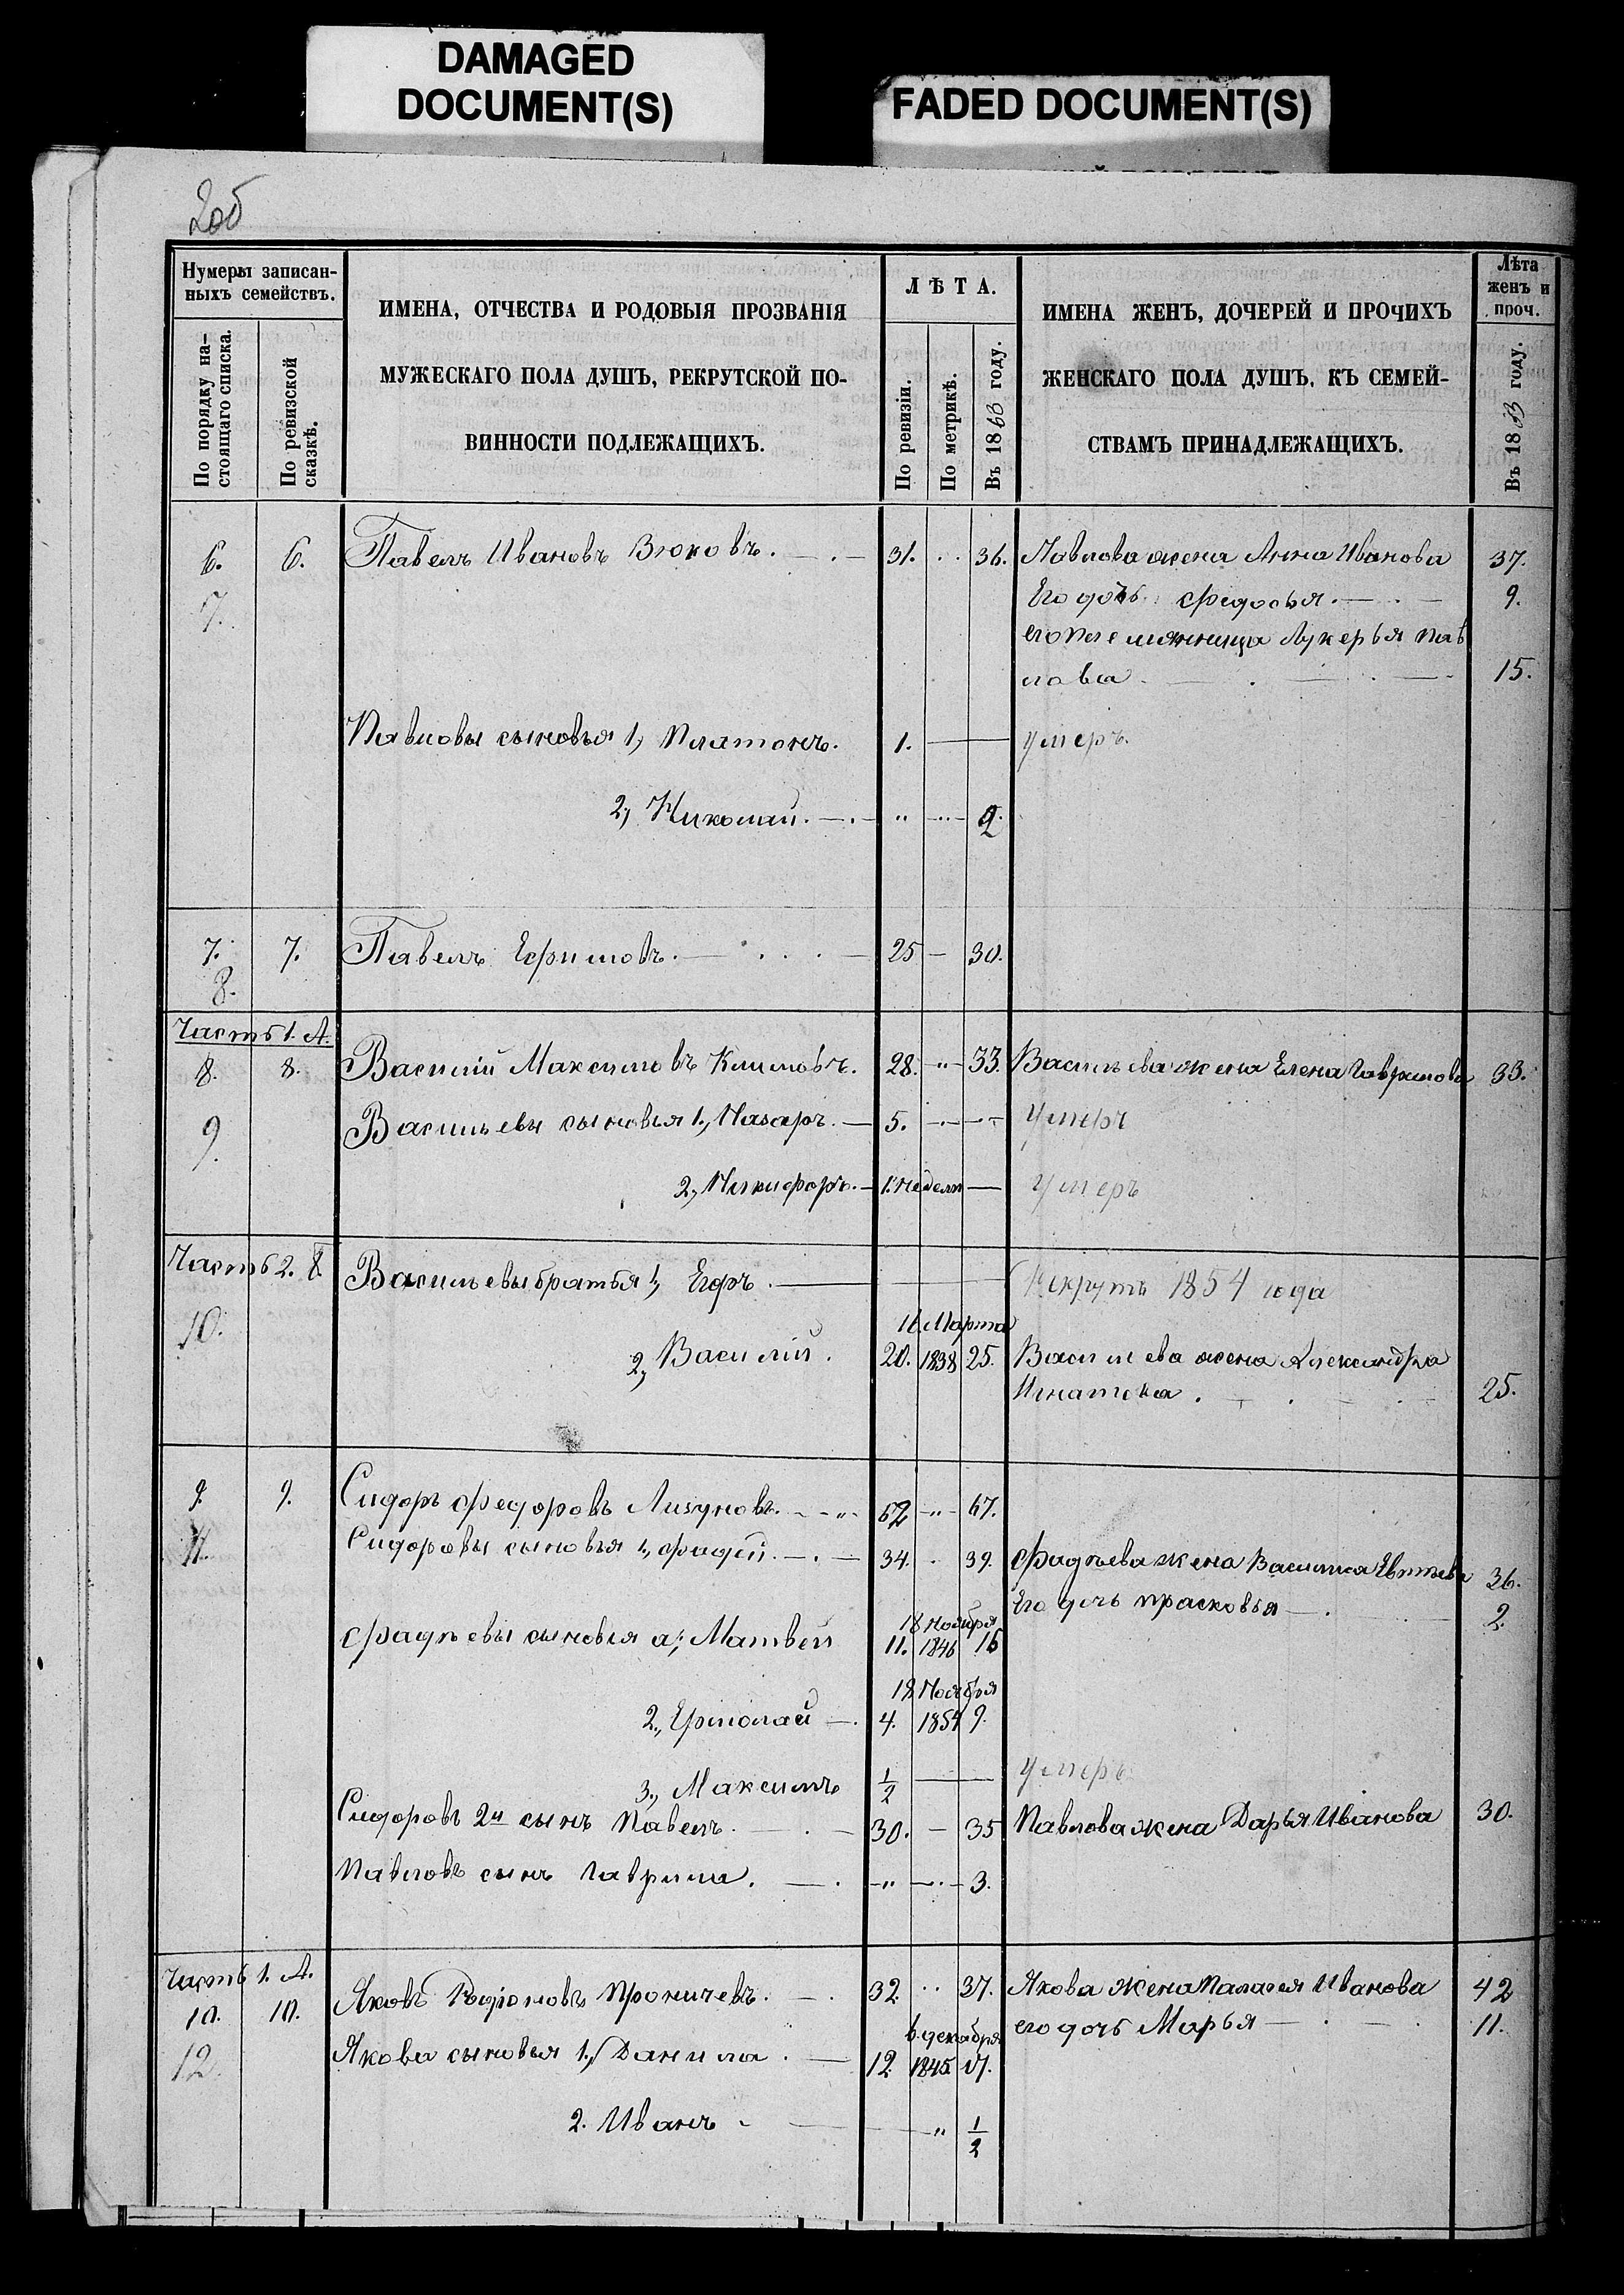 DAMAGED
DOCUMENT(S)
FADED DOCUMENT(S)
20б
Нумеры записан-
ныхъ семействъ.
По порядку на-
стоящаго списка.
По ревизской
сказкѣ.
ИМЕНА, ОТЧЕСТВА И РОДОВЫЯ ПРОЗВАНІЯ
МУЖЕСКАГО ПОЛА ДУШЪ, РЕКРУТСКОЙ ПО-
ВИННОСТИ ПОДЛЕЖАЩИХЪ.
ЛѢТА.
По ревизіи.
По метрикѣ.
Въ 1863 году.
ИМЕНА ЖЕНЪ, ДОЧЕРЕЙ И ПРОЧИХЪ
ЖЕНСКАГО ПОЛА ДУШЪ, КЪ СЕМЕЙ-
СТВАМЪ ПРИНАДЛЕЖАЩИХЪ.
Лѣта
женъ и
проч.
Въ 1863 году.
6. 6. Павелъ Ивановъ 31. 36. Павлова жена Анна Иванова 37.
7. Его дочь Федосья. 9.
его племянница Лукерья Пав
лова 15.
Павловы сыновья 1, Платонъ. 1. умеръ.
2, Николай. " 2.
7. 7. Павелъ Ефимовъ. 25 — 30.
8.
Часть 1. А.
8. 8. Василій Максимовъ Климовъ. 28. " 33. Васильева жена Елена Гаврилова 33.
9. Васильевы сыновья 1., Назаръ. 5. умеръ
2., Никифоръ. 1. недели умеръ
Часть 2. Васильевы братья 1, Егоръ. Рекрутъ 1854 года
10. 16 Марта
2, Василій. 20. 1838 25. Васильева жена Александра
Игнатова. 25.
9. 9. Сидоръ Федоровъ Лизуновъ. 62 " 67.
11. Сидоровы сыновья 1., Фадей. 34. 39. Фадѣева жена Василиса 36.
Его дочь Прасковья 2.
18 ноября
Фадѣевы сыновья а; Матвей 11. 1846 16
18 Ноября
2., Ермолай 4. 1854 9.
3., Максимъ 1/2 умеръ
Сидоровъ 2й сынъ Павелъ. 30. — 35 Павлова жена Дарья Иванова 30.
Павловъ сынъ Гаврила. " 3.
Часть 1. А.
10. 10. Яковъ Родіоновъ Проничевъ. 32. 37. Якова жена Палагея Иванова 42
6 декабря его дочь Марья 11.
12. Якова сыновья 1., Данила. 12. 1845 17.
2. Иванъ " 1/2